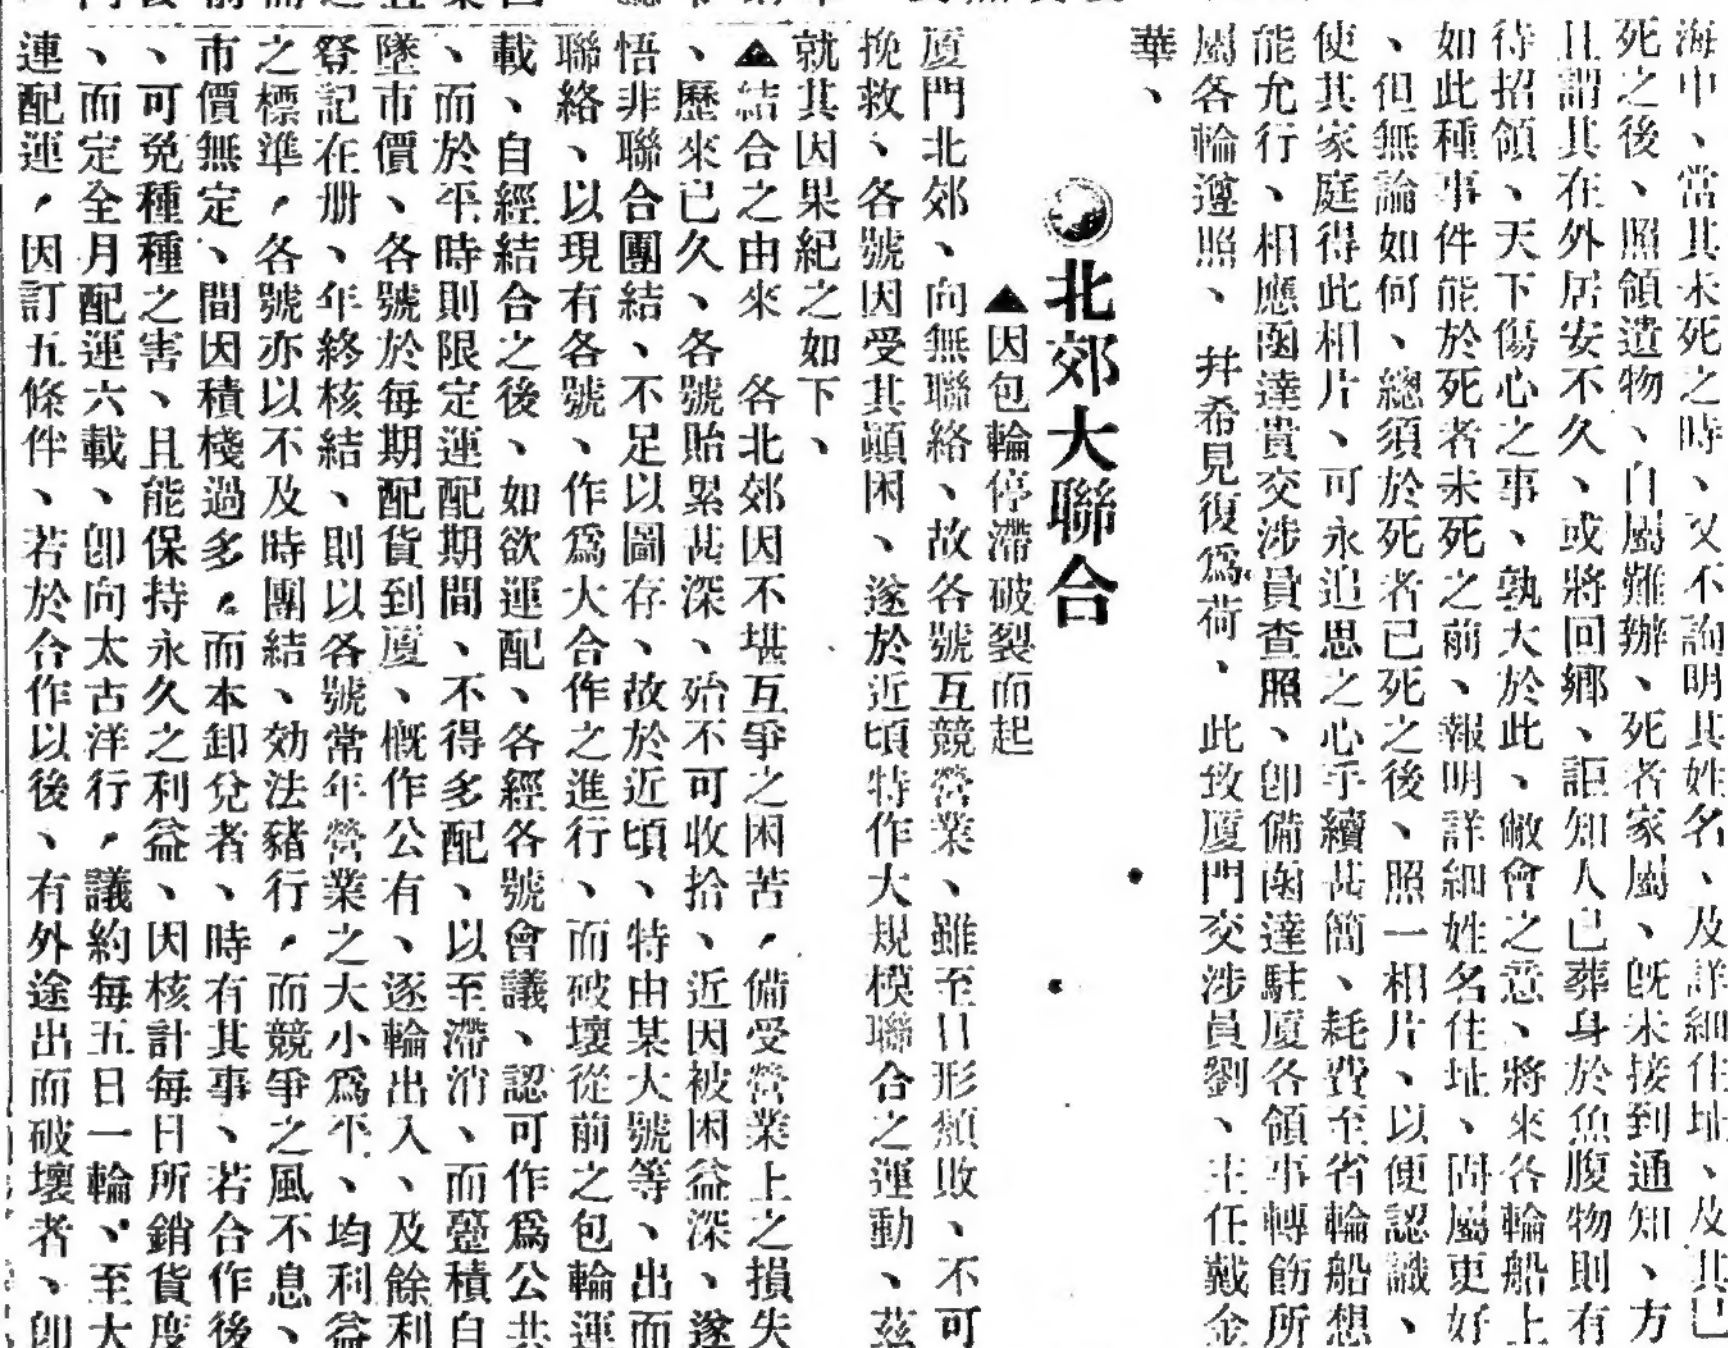 海中、當其未死之時、又不詢明其姓名、及詳細住址、及其已
死之後、照領遺物、自屬難辦、死者家屬、旣未接到通知、方
且謂其在外居安不久、或將回鄉、詎知人已葬身於魚腹物則有
待招領、天下傷心之事、孰大於此、敝會之意、將來各輪船上
如此種事件能於死者未死之前、報明詳細姓名住址、尙屬更好
、但無論如何、總須於死者已死之後、照一相片、以便認識、
使其家庭得此相片、可永追思之心手續甚簡、耗費至省輪船想
能允行、相應函達貴交涉員查照、卽備函達駐厦各領事轉飭所
屬各輪遵照、幷希見復爲荷、此致厦門交涉員劉、主任戴金
華、
北郊大聯合
▲因包輪停滯破裂而起
厦門北郊、向無聯絡、故各號互競營業、雖至日形頹敗、不可
挽救、各號因受其顚困、遂於近頃特作大規模聯合之運動、茲
就其因果紀之如下、
▲結合之由來 各北郊因不堪互爭之困苦，備受營業上之損失
、歷來已久、各號貽累甚深、殆不可收拾、近因被困益深、遂
悟非聯合團結、不足以圖存、故於近頃、特由某大號等、出而
聯絡、以現有各號、作爲大合作之進行、而破壞從前之包輪運
載、自經結合之後、如欲運配、各經各號會議、認可作爲公共
、而於平時則限定運配期間、不得多配、以至滯消、而躉積自
墜市價、各號於每期配貨到厦、槪作公有、逐輪出入、及餘利
登記在册、年終核結、則以各號常年營業之大小爲平、均利益
之標準，各號亦以不及時團結、効法豬行，而競爭之風不息、
市價無定、間因積棧過多，而本卸兌者、時有其事、若合作後
、可免種種之害、且能保持永久之利益、因核計每日所銷貨度
、而定全月配運六載、卽向太古洋行，議約每五日一輪、至大
連配運，因訂五條件、若於合作以後、有外途出而破壞者、卽